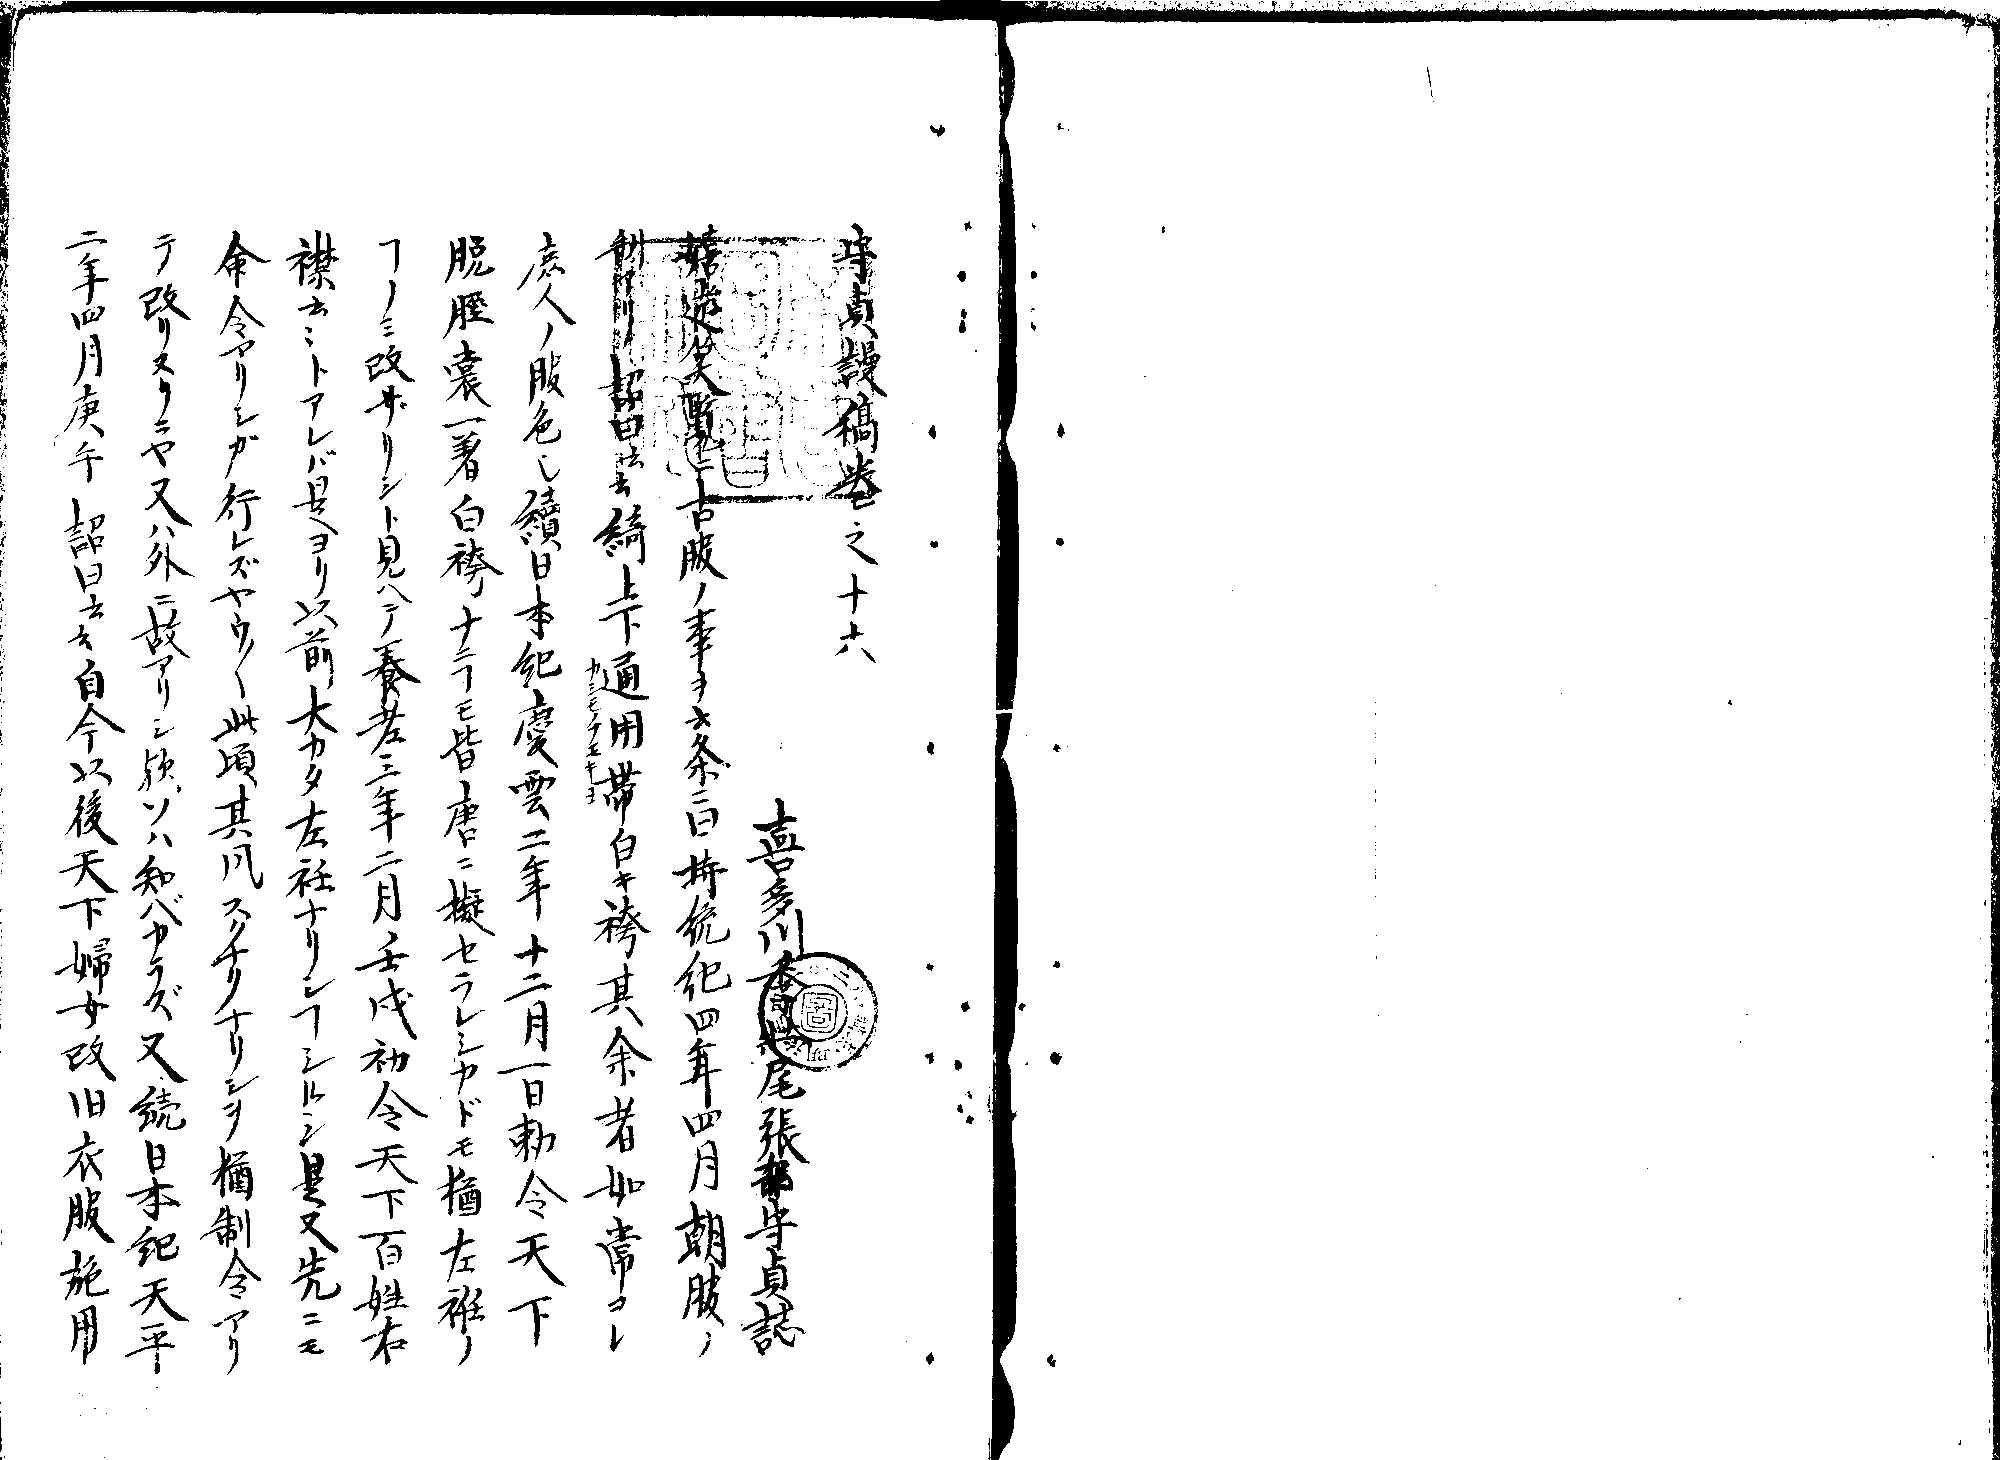 守貞謾稿巻之十六
喜多川季荘尾張部守貞誌
嬉遊笑覧ニ古服ノ事ヲ云条ニ曰持統紀四年四月朝服ノ
制アリ詔曰云云綺上下通用帯白キ袴其余者如常コレ
庶人ノ服色也續日本紀慶雲二年十二月一日勅令天下
脱脛裳一著白袴ノナニヿモ皆唐ニ擬セラレシカドモ猶左衽ノ
ヿノミ改ザリシト見ヘテ養老三年二月ノ壬戌初令天下百姓右
襟云ミトアレバ是ヨリ以前大カタ左衽ナリシヿシルシ是又先ニモ
命令アリシガ行レズヤウ〱此頃其風スクナリナリシヲ猶制令アリ
テ改リヌルニヤ又ハ外ニ故アリシ歟ソハ知ベカラズ又続日本紀天平
二年四月庚午詔曰云云自今以後天下婦女改旧衣服施用